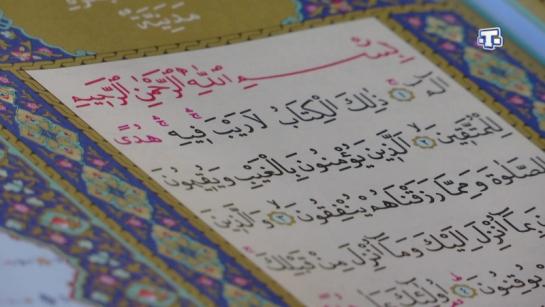 مَدَنِيَّةٌ
بِسْمِ اللّٰهِ الرَّحْمٰنِ الرَّحِيمِ
الٓمٓ ۝١ ذٰلِكَ الْكِتَابُ لَا رَيْبَ فِيهِ هُدًى
لِلْمُتَّقِينَ ۝٢ اَلَّذِينَ يُؤْمِنُونَ بِالْغَيْبِ وَيُقِيمُونَ
الصَّلٰوةَ وَمِمَّا رَزَقْنَاهُمْ يُنْفِقُونَ ۝٣ وَالَّذِينَ
بِمَٓا اُنْزِلَ اِلَيْكَ وَمَٓا اُنْزِلَ مِنْ قَبْلِكَ
يُوقِنُونَ ۝٤ اُولٰٓئِكَ
T